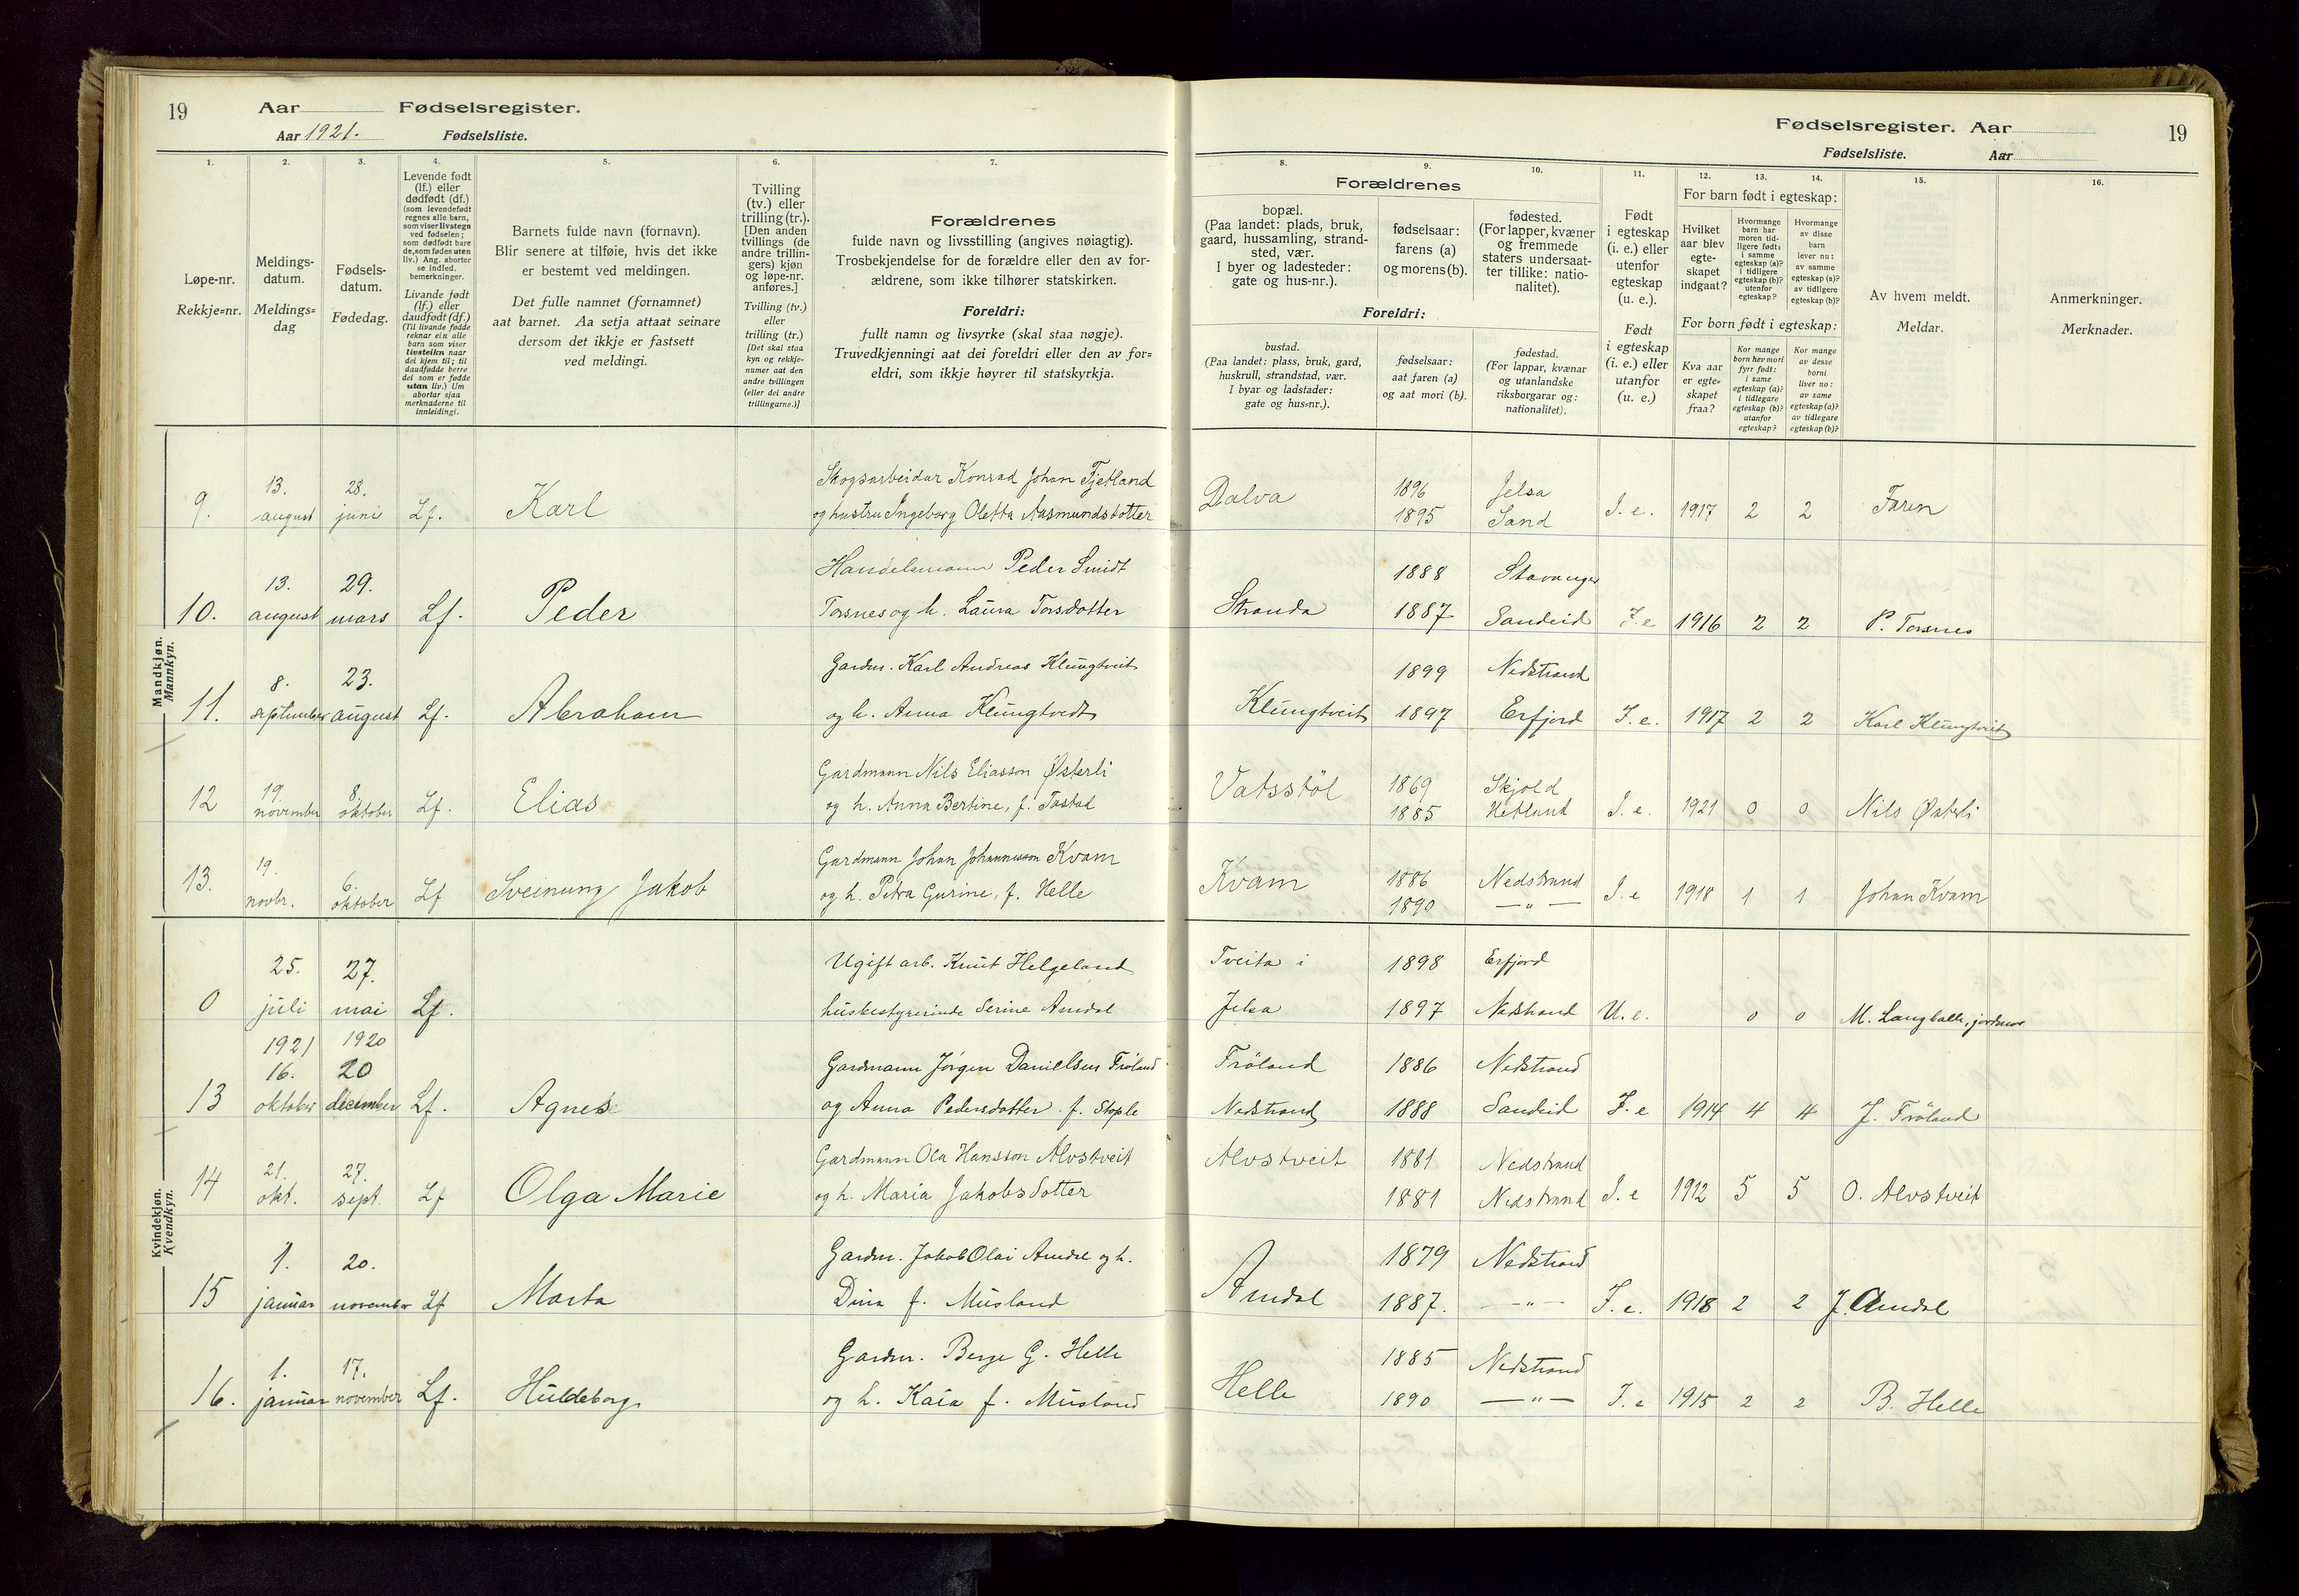 19 Aar Fødselsregister.
Aar 1921. Fødselsliste.
1. 2. 3. 4. 5. 6. 7.
Løpe-nr.
Rekkje=nr.
Meldings-
datum.
Meldings=
dag
Fødsels-
datum.
Fødedag.
Levende født
(lf.) eller
dødfødt (df.)
(som levendefødt
regnes alle barn,
som viser livstegn
ved fødselen;
som dødfødt bare
de, som fødes uten
liv.) Ang. aborter
se indled.
bemerkninger.
Livande født
(lf.) eller
daudfødt (df.)
(Til livande fødde
reknar ein alle
barn som viser
livsteikn naar
dei kjem til; til
daudfødde berre
dei som er fødde
utan liv.) Um
abortar sjaa
merknaderne til
innleidingi.
Barnets fulde navn (fornavn).
Blir senere at tilføie, hvis det ikke
er bestemt ved meldingen.
Det fulle namnet (fornamnet)
aat barnet. Aa setja attaat seinare
dersom det ikkje er fastsett
ved meldingi.
Tvilling
(tv.) eller
trilling (tr.).
[Den anden
tvillings (de
andre trillin-
gers) kjøn
og løpe-nr.
anføres.]
Tvilling (tv.)
eller
trilling (tr.)
[Det skal staa
kyn og rekkje-
numer aat den
andre tvillingen
(eller dei andre
trillingarne.)]
Forældrenes
fulde navn og livsstilling (angives nøiagtig).
Trosbekjendelse for de forældre eller den av for-
ældrene, som ikke tilhører statskirken.
Foreldri:
fullt namn og livsyrke (skal staa nøgje).
Truvedkjenningi aat dei foreldri eller den av for=
eldri, som ikkje høyrer til statskyrkja.
Mandkjøn.
Mannkyn.
9. 13. august 28. juni Lf. Karl Skogsarbeidar Konrad Johan Fjetland
og hustru Ingeborg Oletta Aasmundsdotter
10. 13. august 29. mars Lf. Peder Handelsmann Peder Smidt
Torsnes og h. Laura Torsdotter
11. 8. september 23. august Lf. Abraham Gardm. Karl Andreas Klungtveit
og h. Anna Klungtvedt
12 19. november 8. oktober Lf. Elias Gardmann Nils Eliasson Østerli
og h. Anna Bertine, f. Tastad
13. 19. novbr. 6. oktober Lf Sveinung Jakob Gardmann Johan Johannesson Kvam
og h. Petra Gurine, f. Helle
Kvindekjøn.
Kvendkyn.
0 25. juli 1921 27. mai 1920 Lf. Ugift arb. Knut Helgeland
husbestyrerinde Serine Amdal
13 16. oktober 20 december Lf. Agnes Gardmann Jørgen Daniellsen Frøland
og Anna Pedersdotter f. Stople
14 21. okt. 27. sept. Lf Olga Marie Gardmann Ola Hansson Alvstveit
og h. Maria Jakobsdotter
15 1. januar 20. november Lf Marta Gardm. Jakob Olai Amdal og h.
Dina f. Musland
16. 1. januar 17. november Lf. Huldeborg Gardm. Berge G. Helle
og h. Kaia f. Musland
Fødselsregister. Aar 19
Fødselsliste. Aar
8. 9. 10. 11. 12. 13. 14. 15. 16.
Forældrenes
bopæl.
(Paa landet: plads, bruk,
gaard, hussamling, strand-
sted, vær.
I byer og ladesteder:
gate og hus-nr.).
fødselsaar:
farens (a)
og morens (b).
fødested.
(For lapper, kvæner
og fremmede
staters undersaat-
ter tillike: natio-
nalitet).
Foreldri:
bustad.
(Paa landet: plass, bruk, gard,
huskrull, strandstad, vær.
I byar og ladstader:
gate og hus=nr.).
fødselsaar:
aat faren (a)
og aat mori (b).
fødestad.
(For lappar, kvænar
og utanlandske
riksborgarar og:
nationalitet).
Født
i egteskap
(i. e.) eller
utenfor
egteskap
(u. e.).
Født
i egteskap
(i. e.) eller
utanfor
(u. e.)
For barn født i egteskap:
Hvilket
aar blev
egte-
skapet
indgaat?
Hvormange
barn har
moren tid-
ligere født:
i samme
egteskap (a)?
i tidligere
egteskap (b)?
utenfor
egteskap?
Hvormange
av disse
barn
lever nu:
av samme
egteskap (a)?
av tidligere
egteskap (b)?
For born født i egteskap:
Kva aar
er egte=
skapet
fraa?
Kor mange
born hev mori
fyrr født:
i same
egteskap (a)?
i tidlegare
egteskap (b)?
utanfor
egteskap?
Kor mange
av desse
borni
liver no:
av same
egteskap (a)?
av tidlegare
egteskap (b)?
Av hvem meldt.
Meldar.
Anmerkninger.
Merknader.
Dalva 1896 Jelsa
1895 Sand I. e. 1917 2 2 Faren
Stranda 1888 Stavanger
1887 Sandeid I. e 1916 2 2 P. Torsnes
Klungtveit 1899 Nedstrand
1897 Erfjord I. e. 1917 2 2 Karl Klungtveit
Vatsstøl 1869 Skjold
1885 Hetland I. e. 1921 0 0 Nils Østerli
Kvam 1886 Nedstrand
1890 — " — I. e 1918 1 1 Johan Kvam
Tveita i 1898 Erfjord
Jelsa 1897 Nedstrand U. e. 0 0 M. Langballe, jordmor
Frøland 1886 Nedstrand
Nedstrand 1888 Sandeid I. e 1914 4 4 J. Frøland
Alvstveit 1881 Nedstrand
1881 Nedstrand I. e 1912 5 5 O. Alvstveit
Amdal 1879 Nedstrand
1887. — " — I. e. 1918 2 2 J. Amdal
Helle 1885 Nedstrand
1890 — " — I. e 1915 2 2 B. Helle